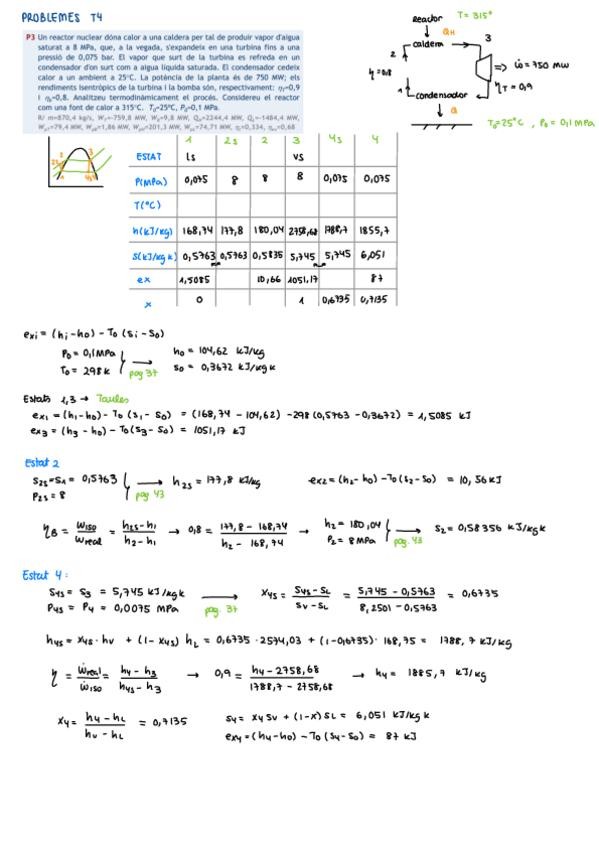 PROBLEMES T4
P3 Un reactor nuclear dóna calor a una caldera per tal de produir vapor d'aigua
saturat a 8 MPa, que, a la vegada, s'expandeix en una turbina fins a una
pressió de 0,075 bar. El vapor que surt de la turbina es refreda en un
condensador d'on surt com a aigua líquida saturada. El condensador cedeix
calor a un ambient a 25°C. La potència de la planta és de 750 MW; els
rendiments isentròpics de la turbina i la bomba són, respectivament: ηT=0,9
i ηb=0,8. Analitzeu termodinàmicament el procés. Considereu el reactor
com una font de calor a 315°C. T0=25°C, P0=0,1 MPa.
R/ m=870,4 kg/s, WT=-759,8 MW, WB=9,8 MW, Q=2244,4 MW, Q=-1484,4 MW,
W=79,4 MW, W=1,86 MW, W=201,3 MW, W=74,71 MW, η=0,334, η=0,68
Reactor T = 315°
QH
caldera 3
2
η=0,8
ẇ = 750 MW
ηT = 0,9
1 condensador 4
Q
T0=25°C , P0 = 0,1 MPa
1 2s 2 3 4s 4
ESTAT ls vs
P(MPa) 0,075 8 8 8 0,075 0,075
T(°C)
h(kJ/kg) 168,74 177,8 180,04 2758,68 1788,7 1855,7
S(kJ/kg k) 0,5763 0,5763 0,5835 5,745 5,745 6,051
ex 1,5085 10,66 1051,17 87
x 0 1 0,6735 0,7135
exi = (hi-h0) - T0 (si - s0)
P0 = 0,1 MPa h0 = 104,62 kJ/kg
T0 = 298 k pag 37 s0 = 0,3672 kJ/kg k
Estats 1,3 → Taules
ex1 = (h1-h0) - T0 (s1 - s0) = (168,74 - 104,62) - 298 (0,5763 - 0,3672) = 1,5085 kJ
ex3 = (h3 - h0) - T0 (s3 - s0) = 1051,17 kJ
Estat 2
S2s=S1 = 0,5763 → h2s = 177,8 kJ/kg ex2 = (h2 - h0) - T0 (s2 - s0) = 10,56 kJ
P2s = 8 pag 43
ηB = ẇiso/ẇreal = h2s-h1/h2-h1 → 0,8 = 177,8 - 168,74/h2 - 168,74 → h2 = 180,04 → s2 = 0,58356 kJ/kg k
P2 = 8 MPa pag. 43
Estat 4 :
S4s = s3 = 5,745 kJ/kg k → x4s = s4s - sL/sv - sL = 5,745 - 0,5763/8,2501 - 0,5763 = 0,6735
P4s = P4 = 0,0075 MPa pag. 37
h4s = x4s · hv + (1- x4s) hL = 0,6735 · 2574,03 + (1-0,6735) · 168,75 = 1788,7 kJ/kg
η = ẇreal/ẇiso = h4 - h3/h4s - h3 → 0,9 = h4 - 2758,68/1788,7 - 2758,68 → h4 = 1885,7 kJ/kg
x4 = h4 - hL/hv - hL = 0,7135 s4 = x4 sv + (1-x) sL = 6,051 kJ/kg k
ex4 = (h4 - h0) - T0 (s4 - s0) = 87 kJ